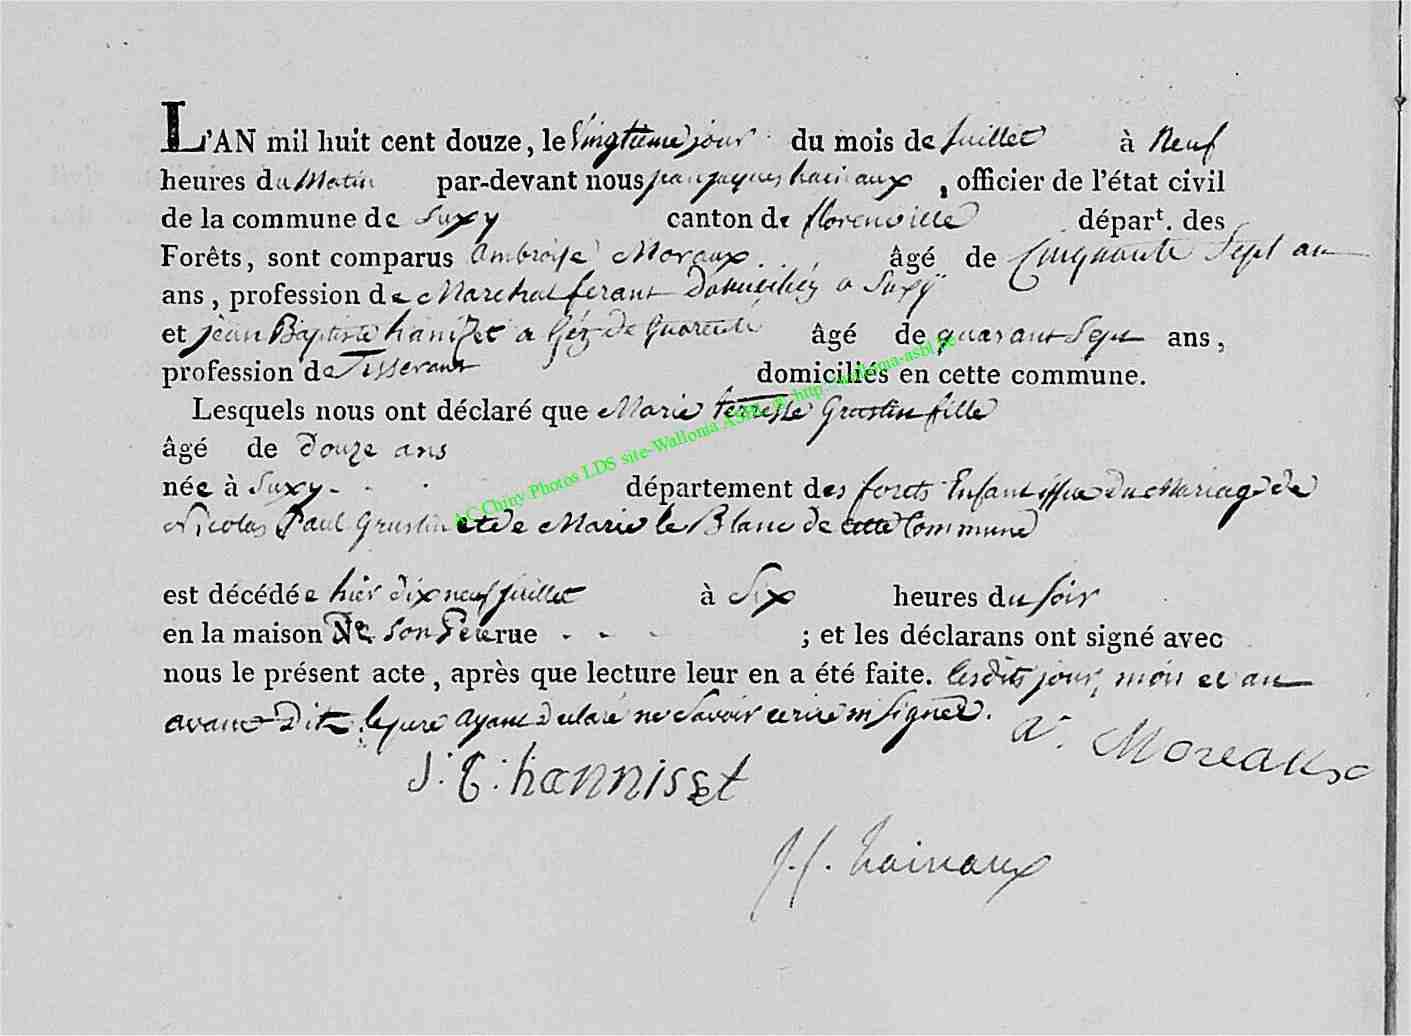 L'AN mil huit cent douze, le vingtieme jour du mois de Juillet à neuf
heures du Matin par-devant nous jean jaques hainaux, officier de l'état civil
de la commune de Suxy canton de florenville dépar^t. des
Forêts, sont comparus Ambroise Moraux . . , âgé de Cinquante Sept an
ans, profession de Marechal ferant Domiciliéz a Suxÿ
et jean Baptiste hanizet a Géz de Quarente âgé de quarant Sept ans,
profession de Tisserant domiciliés en cette commune.
Lesquels nous ont déclaré que Marie terresse Grustin fille
âgé de Douze ans
née à Suxy - . . département des forets Enfant issue Du Mariage de
Nicolas Paul Grustin et de Marie le Blanc de cette Commune
est décédée hier dix neuf juillet à Six heures du soir
en la maison N° son Pere rue - - - ; et les déclarans ont signé avec
nous le présent acte, après que lecture leur en a été faite. lesdits jour, mois et an
avant Dit, le pere Ayant Declaré ne Savoir ecrire ni signer.
A. Moreaux
J. B. hannisset
J. J. hainaux
AC Chiny Photos LDS site-Wallonia ASBL @ http://wallonia-asbl.be